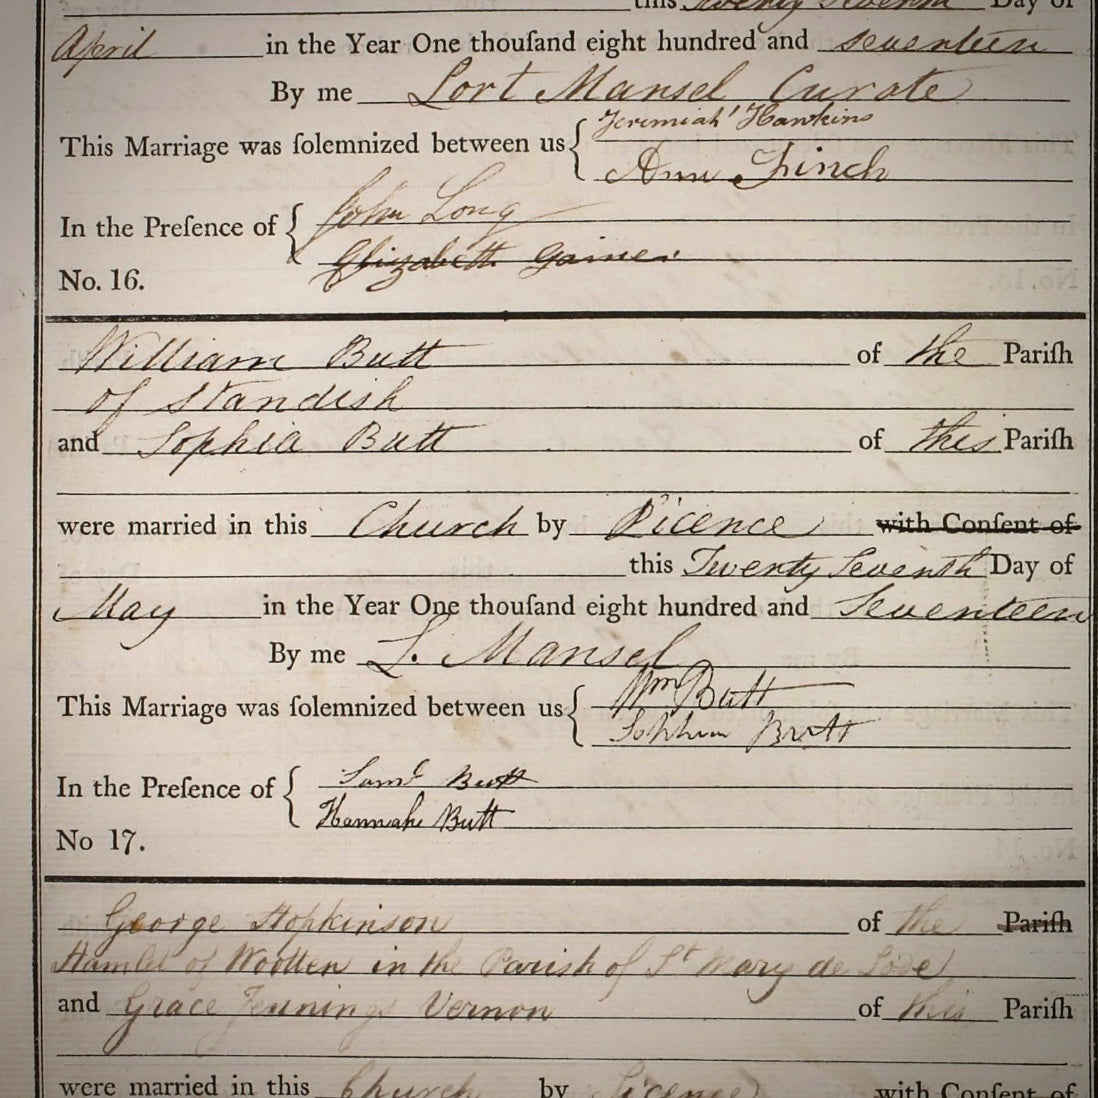 this Twenty Seventh Day of
April in the Year One thouſand eight hundred and seventeen
By me Lort Mansel Curate
This Marriage was ſolemnized between us { Jeremiah Hawkins
Ann Finch
In the Preſence of { John Long
Elizabeth Gainer
No. 16.
William Butt of the Pariſh
of Standish
and Sophia Butt of this Pariſh
were married in this Church by Licence with Conſent of
this Twenty Seventh Day of
May in the Year One thouſand eight hundred and Seventeen
By me L. Mansel
This Marriage was ſolemnized between us { Wm Butt
Sophia Butt
In the Preſence of { Saml Butt
Hannah Butt
No 17.
George Hopkinson of the Pariſh
Hamlet of Wootten in the Parish of St Mary de Lode
and Grace Jennings Vernon of this Pariſh
were married in this Church by Licence with Conſent of